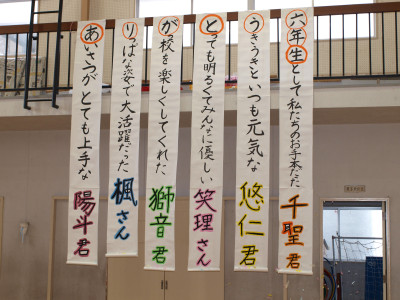 あいさつがとても上手な陽斗君
りっぱな姿で大活躍だった楓さん
がっ校を楽しくしてくれた獅音君
とっても明るくてみんなに優しい笑理さん
うきうきといつも元気な悠仁君
六年生として私たちのお手本だった千聖君